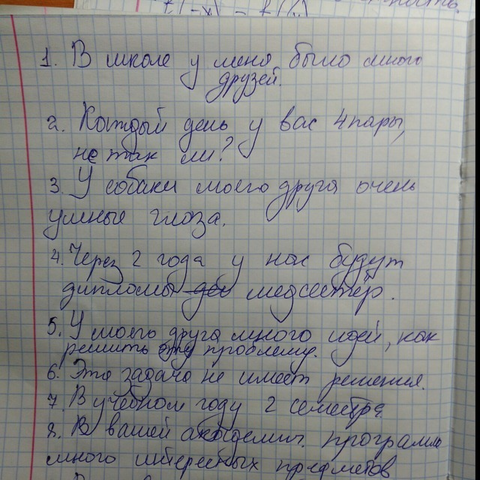 1. В школе у меня было много
друзей.
2. Каждый день у вас 4 пары,
не так ли?
3. У собаки моего друга очень
умные глаза.
4. Через 2 года у нас будут
дипломы медсестёр.
5. У моего друга много идей, как
решить эту проблему.
6. Эта задача не имеет решения.
7. В учебном году 2 семестра.
8. В вашей академии программе
много интересных предметов